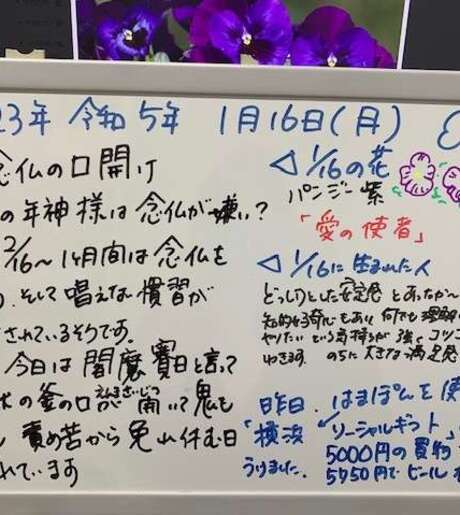 23年 令和5年 1月16日(月)
念仏の口開け
の年神様は念仏が嫌い?
2/16〜1ヶ月間は念仏を
そして唱えない慣習が
されているそうです。
今日は閻魔賽日と言って
えんまさいじつ
の釜の口 開いて鬼も
責め苦から免れ休む日
れています
◁1/16の花
パンジー紫
「愛の使者」
◁1/16に生まれた人
どっしりとした安定感とあったか〜
知的好奇心もあり 何でも理解
やりたいという気持が強く コツコ
わきます。 のちに大きな満足感
昨日、はまぽんを使
「横浜ソーシャルギフト」
5000円の買物
うりました。 5950円でビール